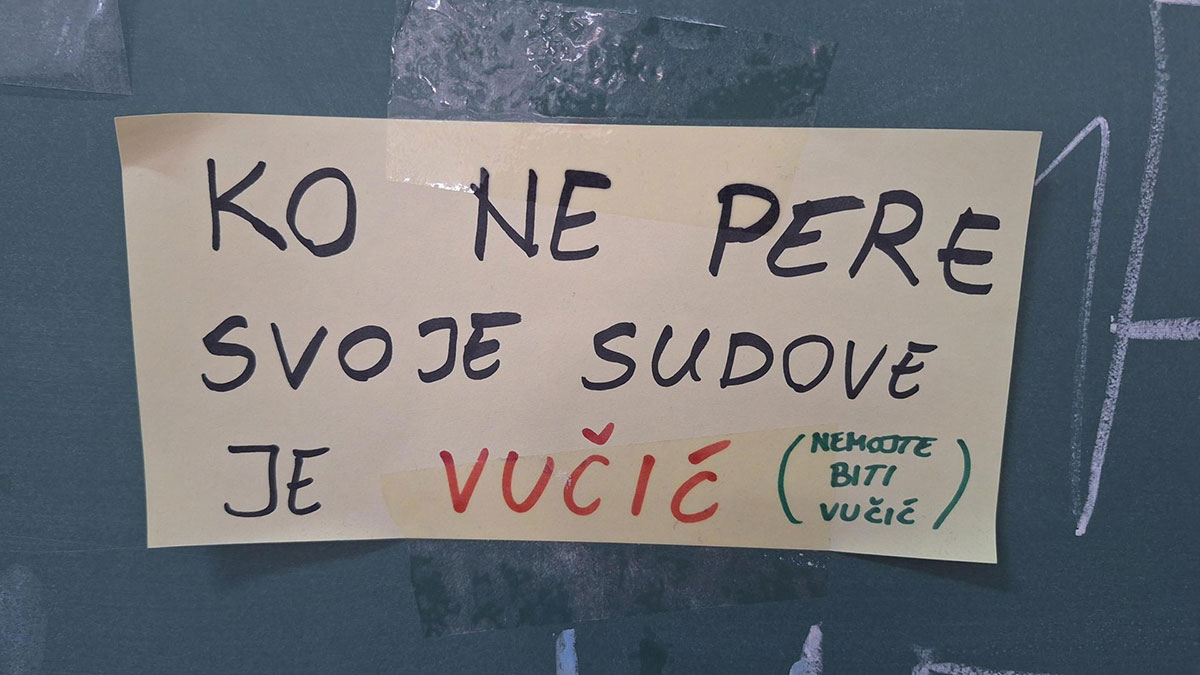 KO NE PERE
SVOJE SUDOVE
JE VUČIĆ (NEMOJTE
BITI
VUČIĆ)